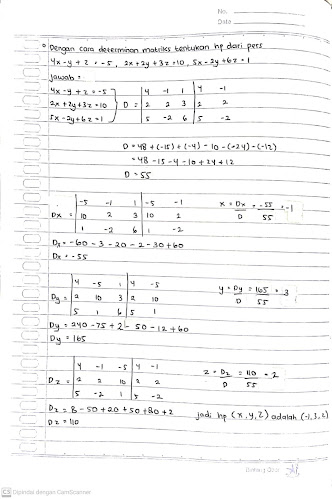 No.
Date
Dengan cara determinan matriks tentukan hp dari pers
4x - y + z = -5, 2x + 2y + 3z = 10, 5x - 2y + 6z = 1
Jawab =
4x - y + z = -5
2x + 2y + 3z = 10
5x - 2y + 6z = 1
D = | 4 -1 1 | 4 -1
2 2 3 | 2 2
5 -2 6 | 5 -2
D = 48 + (-15) + (-4) - 10 - (-24) - (-12)
= 48 - 15 - 4 - 10 + 24 + 12
D = 55
Dx = | -5 -1 1 | -5 -1
10 2 3 | 10 2
1 -2 6 | 1 -2
x = Dx/D = -55/55 = -1
Dx = -60 - 3 - 20 - 2 - 30 + 60
Dx = -55
Dy = | 4 -5 1 | 4 -5
2 10 3 | 2 10
5 1 6 | 5 1
y = Dy/D = 165/55 = 3
Dy = 240 - 75 + 2 - 50 - 12 + 60
Dy = 165
Dz = | 4 -1 -5 | 4 -1
2 2 10 | 2 2
5 -2 1 | 5 -2
z = Dz/D = 110/55 = 2
Dz = 8 - 50 + 20 + 50 + 80 + 2
Dz = 110
Jadi hp (x, y, z) adalah (-1, 3, 2)
CS Dipindai dengan CamScanner